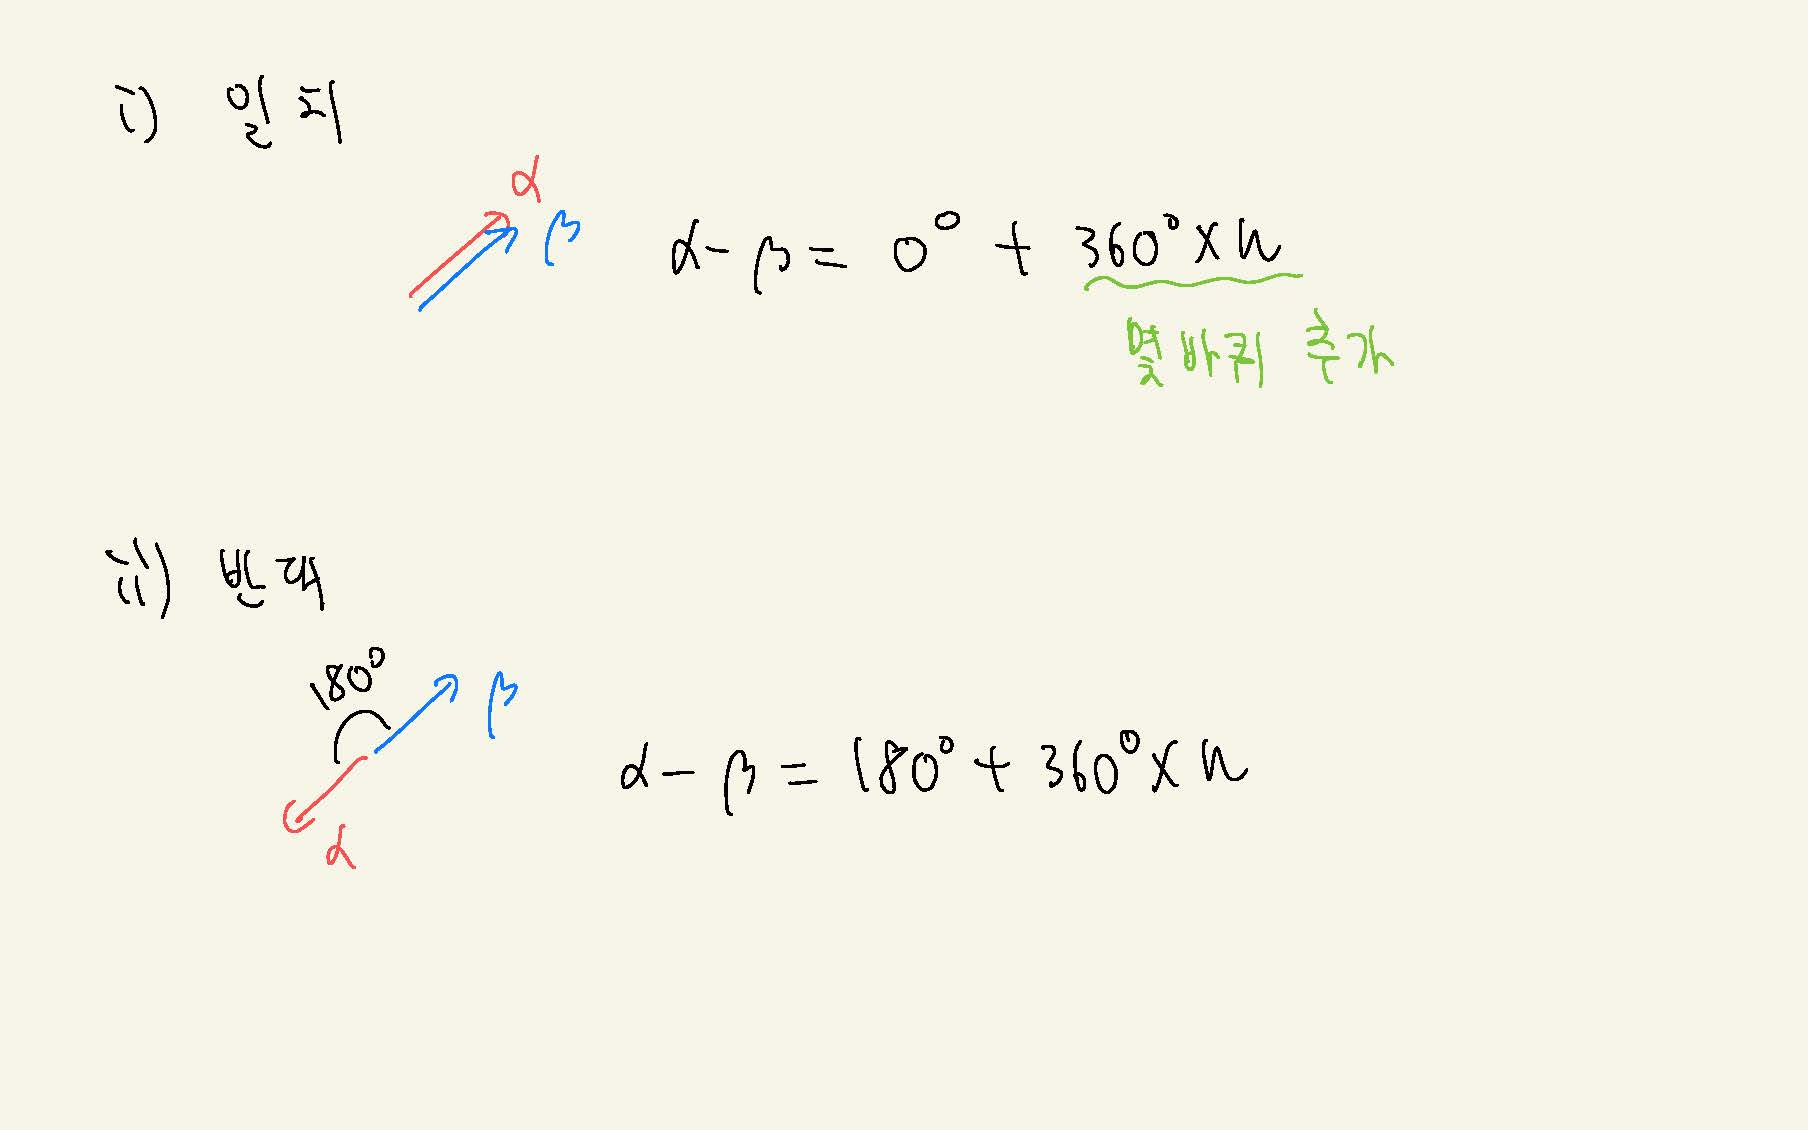 i) 일치
α
β
α - β = 0° + 360° × n
몇 바퀴 추가
ii) 반대
180°
β
α - β = 180° + 360° × n
α